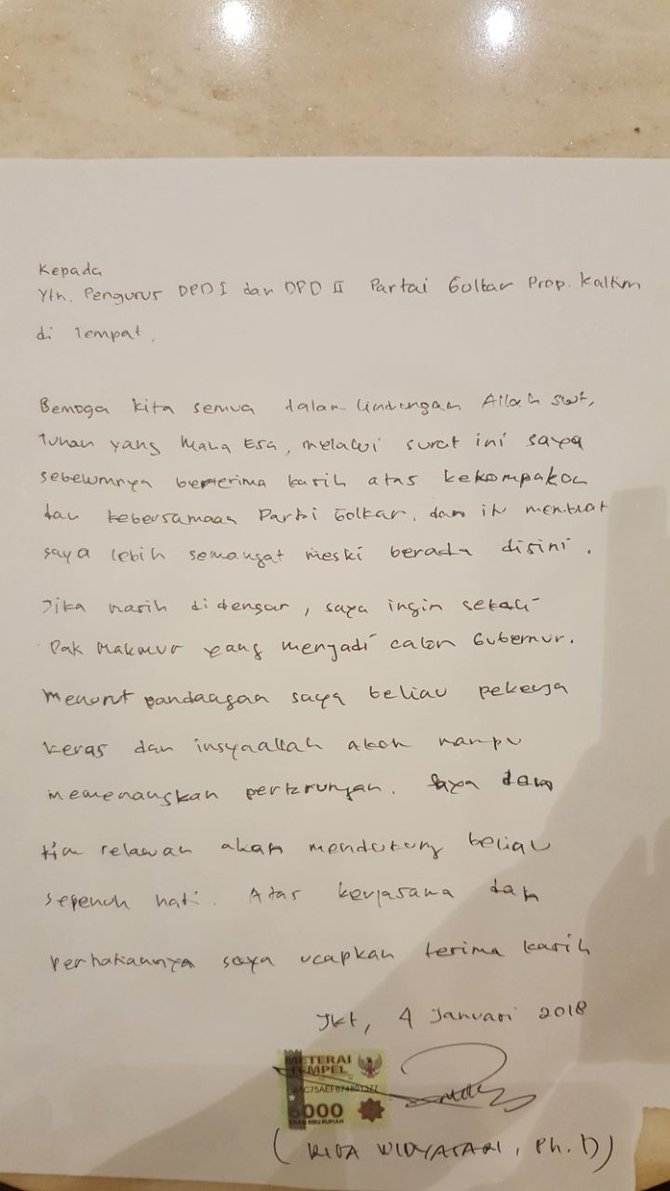 Kepada
Yth. Pengurus DPD I dan DPD II Partai Golkar Prop. Kaltim
di Tempat.
Semoga kita semua dalam lindungan Allah swt,
Tuhan yang Maha Esa, melalui surat ini saya
sebelumnya berterima kasih atas kekompakan
dan kebersamaan Partai Golkar, dan itu membuat
saya lebih semangat meski berada disini.
Jika masih didengar, saya ingin sekali
Pak Makmur yang menjadi calon Gubernur.
Menurut pandangan saya beliau pekerja
keras dan insyaallah akan mampu
memenangkan pertarungan. Saya dan
tim relawan akan mendukung beliau
sepenuh hati. Atas kerjasama dan
perhatiannya saya ucapkan terima kasih
Jkt, 4 Januari 2018
METERAI
TEMPEL
6000
ENAM RIBU RUPIAH
(RITA WIDYASARI, Ph.D)